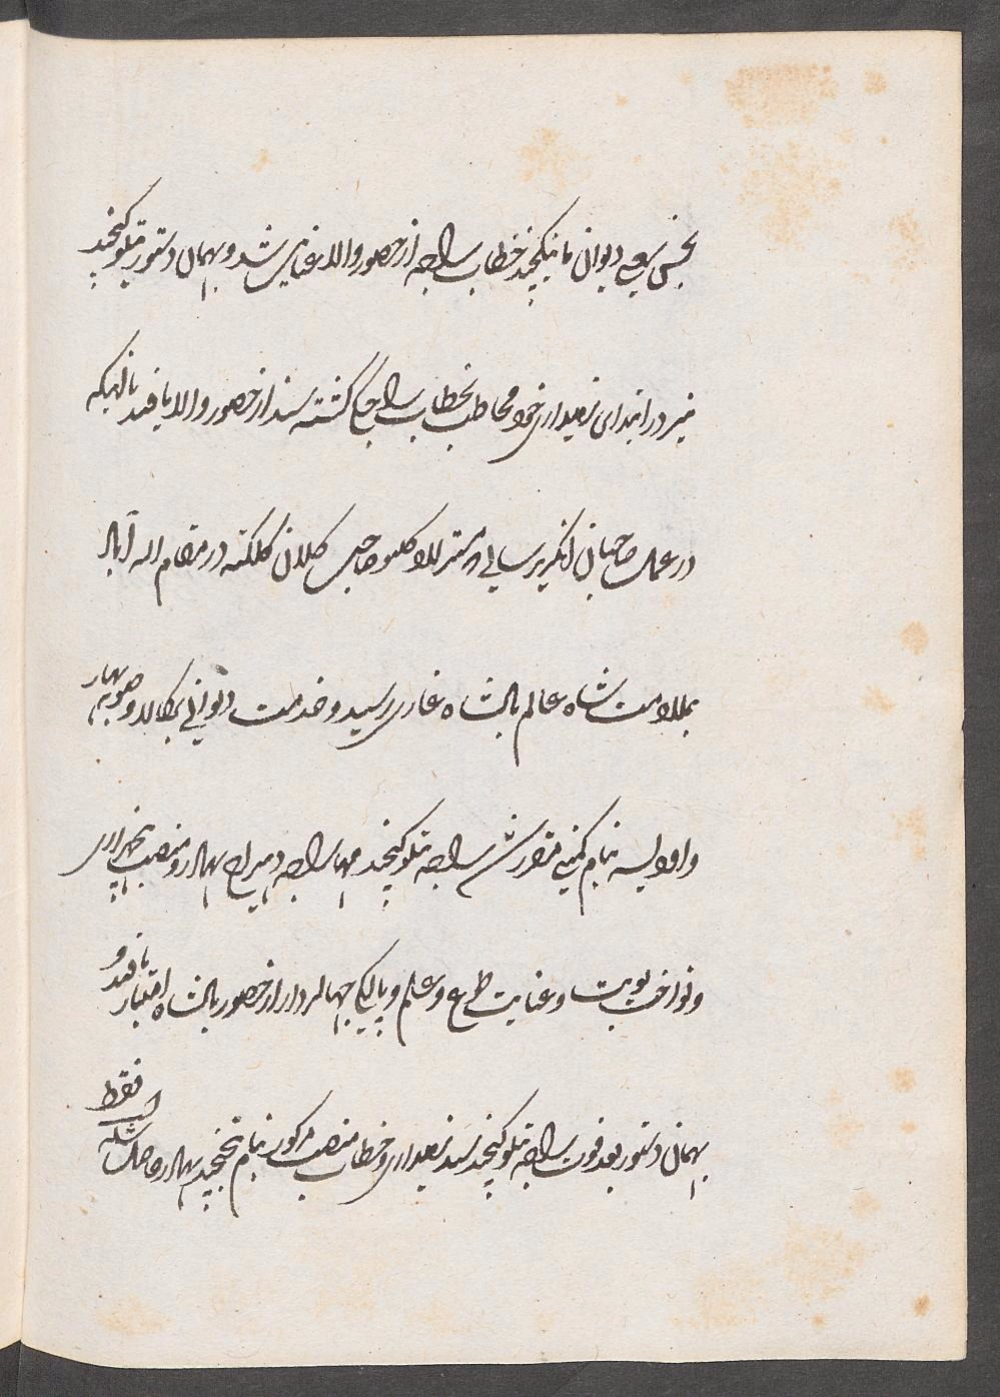 بخشی بسعی دیوان مانیکچند خطاب راجه از حضور والا عنایت شد و بهمان دستور تلوکچند
نیز در ابتدای زمینداری خود مخاطب بخطاب راجگی گشته سند از حضور والا یافتند تا آنکه
در عمل صاحبان انگریز مستر کلو صاحب کلان کلکته در مقام اله آباد
بملازمت شاه عالم بادشاه غازی رسید و خدمت دیوانی بنگاله و صوبه بهار
و اودیسه بنام کمپنی مقرر شد راجه تلوکچند مهاراجه دهیراج بهادر و منصب پنجهزاری
و نواخت نوبت و عنایت و علم و پالکی جهالردار از حضور بادشاه امتیاز یافتند و
بهمان دستور بعد فوت راجه تلوکچند سند زمینداری و خطاب منصب مذکور بنام تیجچند بهادر حاصل شده است فقط